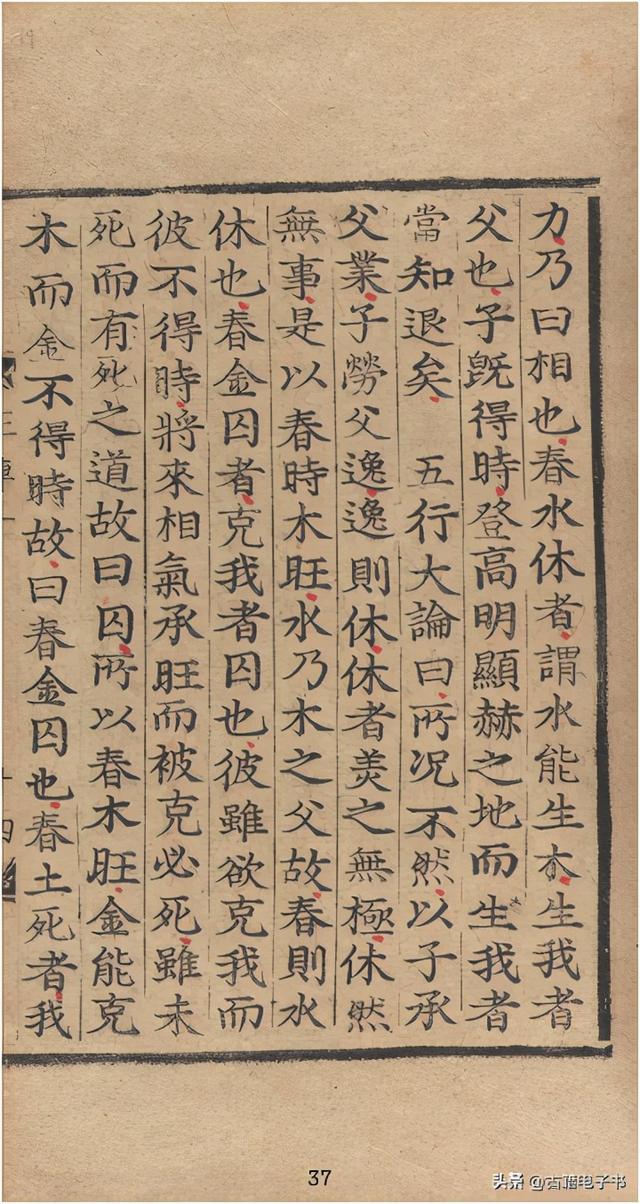 力乃曰相也春水休者謂水能生木生我者
父也子旣得時登高明顯赫之地而生我者
當知退矣　五行大論曰所況不然以子承
父業子勞父逸逸則休休者羙之無極休然
無事是以春時木旺水乃木之父故春則水
休也春金囚者克我者囚也彼雖欲克我而
彼不得時將來相氣承旺而被克必死雖未
死而有死之道故曰囚所以春木旺金能克
木而金不得時故曰春金囚也春土死者我
十四
37
头条@古籍电子书